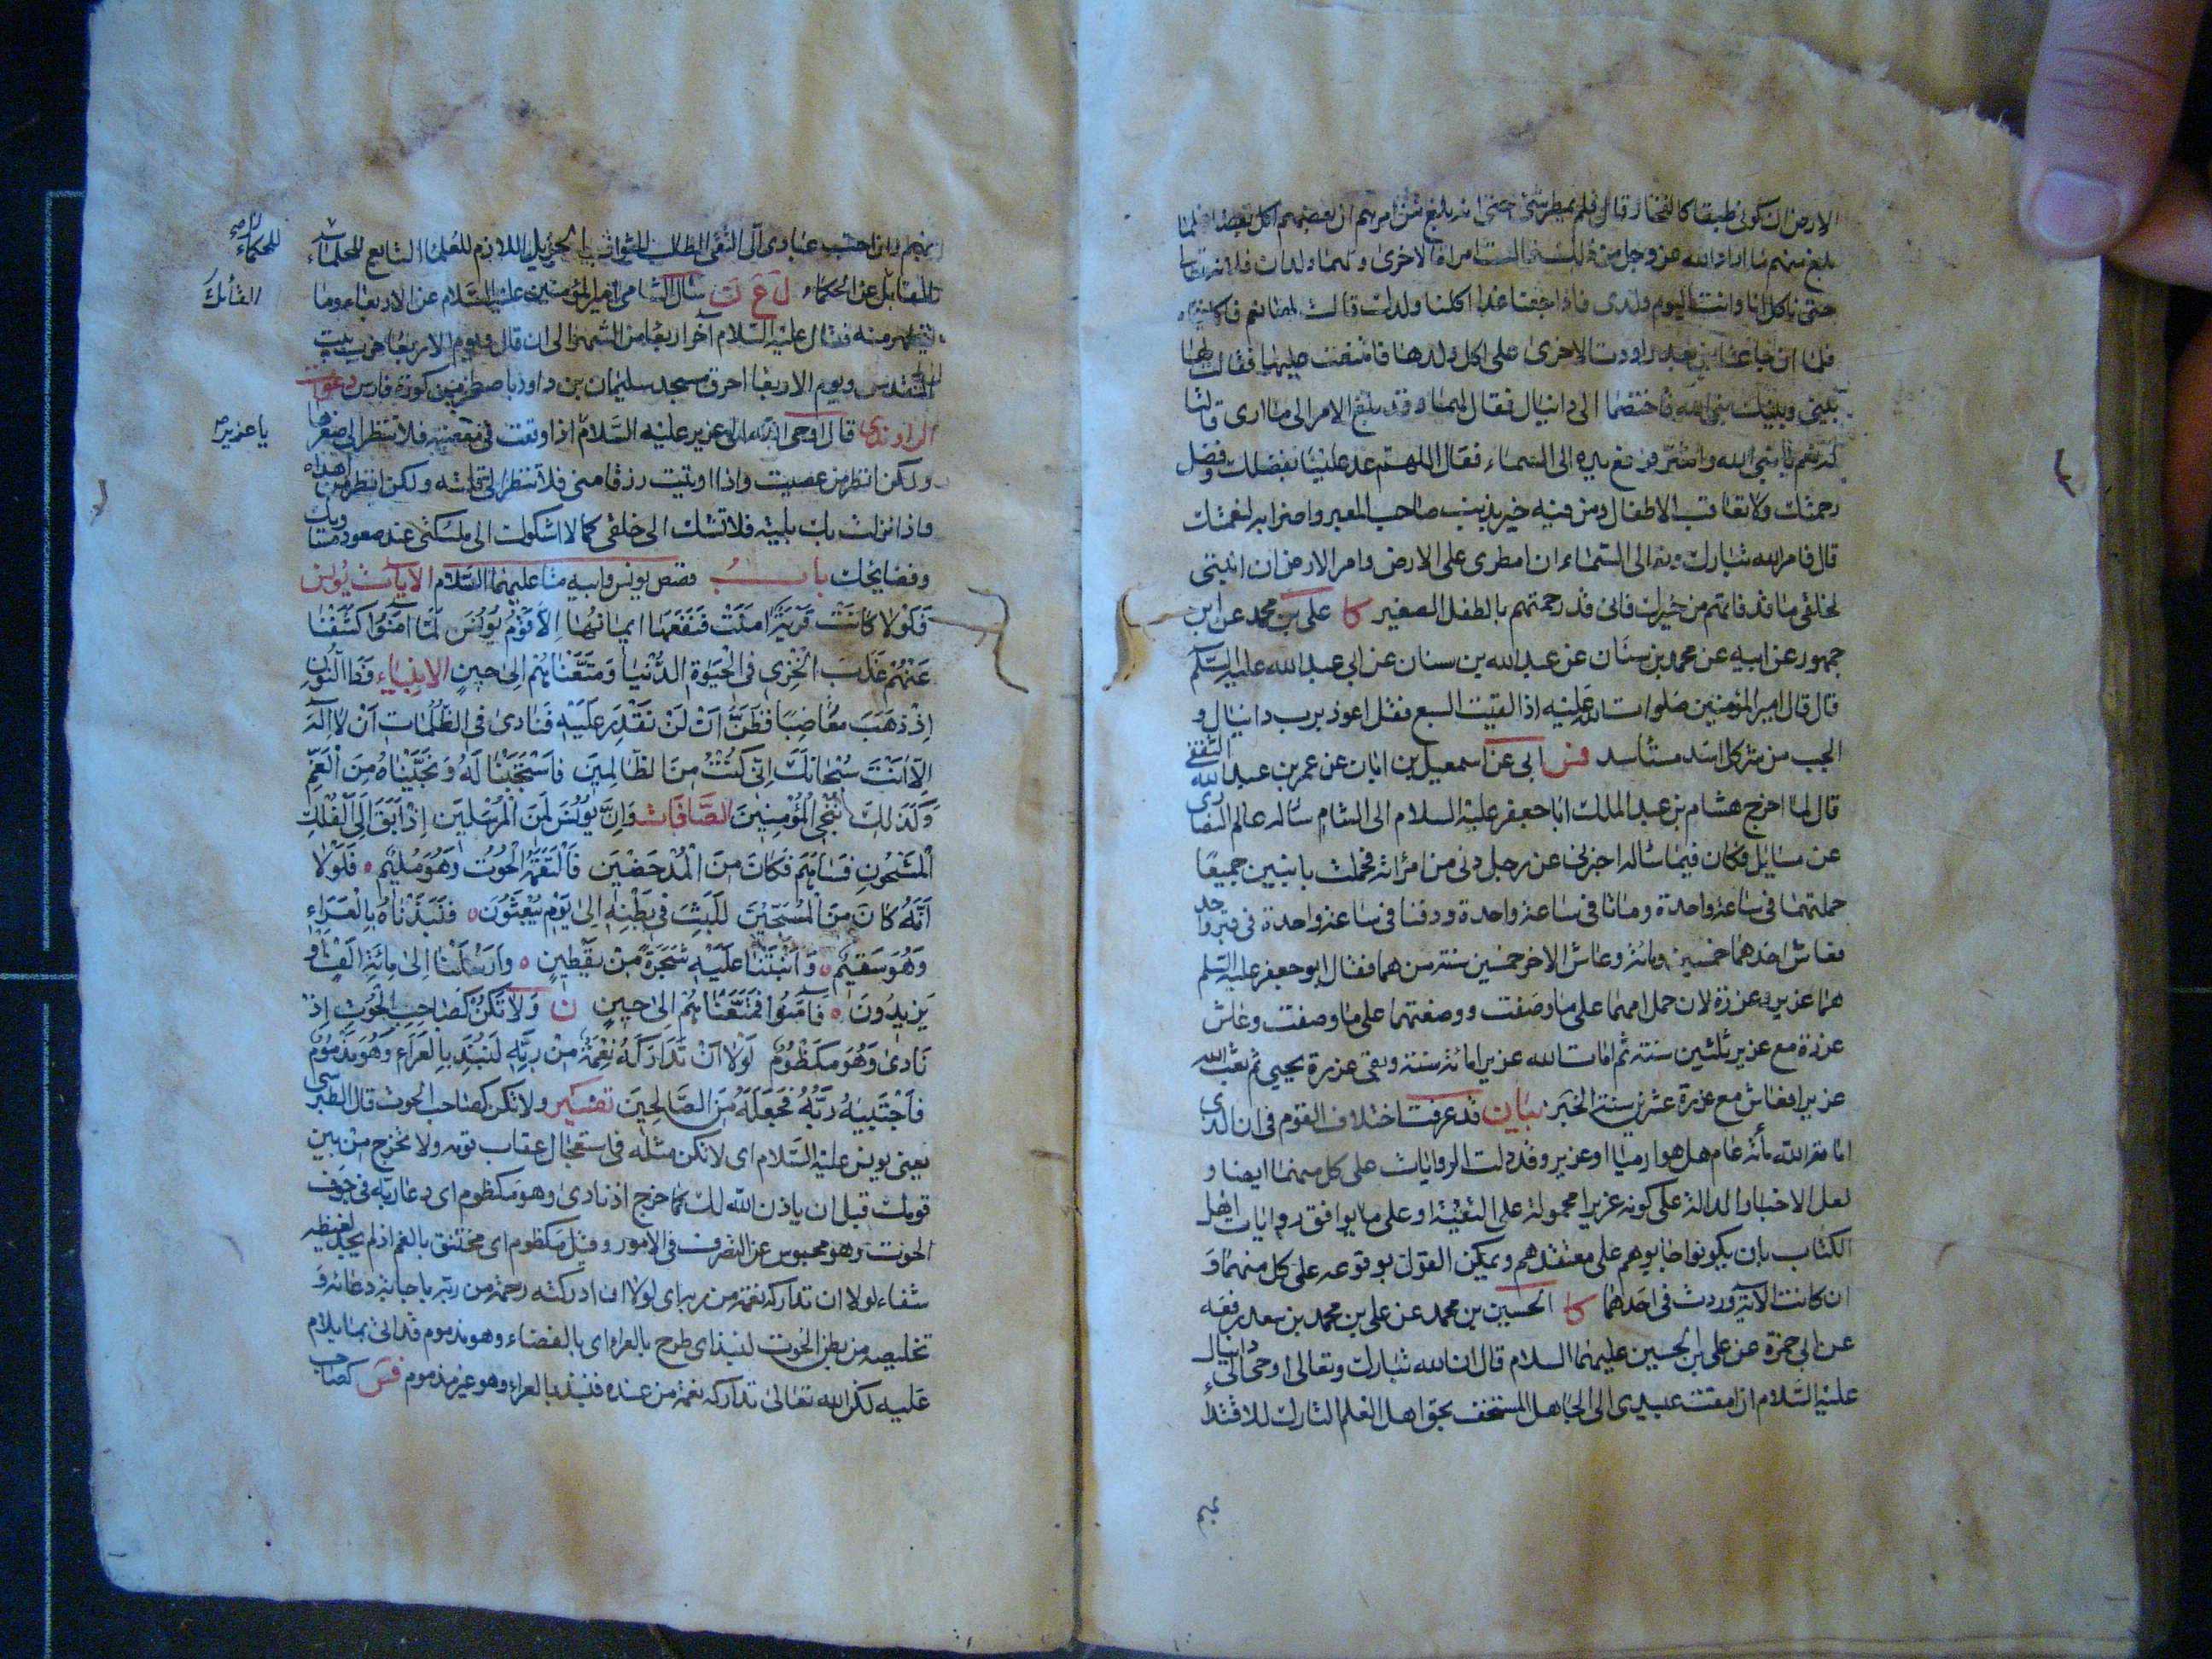 الارض ان كونى طبقا كالفخار قال فلم يمطر شئ حتى انه بلغ من امرهم ان بعضهم اكل بعضا فلما
بلغ منهم ما اراد الله عز وجل من ذلك قالت امراة لاخرى ولهما ولدان فلانه تعالى
حتى ناكل انا وانت اليوم ولدى فاذا جعنا غدا اكلنا ولدك قالت لها نعم فاكلتاه
فلما ان جاعتا من بعد راودت الاخرى على اكل ولدها فامتنعت عليها فقالت لها
بينى وبينك نبى الله فاختصما الى دانيال فقال لهما وقد بلغ الامر الى ما ارى قالتا
له نعم يا نبى الله واشر فرفع يده الى السماء فقال اللهم عد علينا بفضلك وفضل
رحمتك ولا تعاقب الاطفال ومن فيه خير بذنب صاحب المعبر واضرابه لنعمتك
قال فامر الله تبارك وتعالى السماء ان امطرى على الارض وامر الارض ان انبتى
لخلقى ما قد فاتهم من خيرك فانى قد رحمتهم بالطفل الصغير كا على بن محمد عن ابن
جمهور عن ابيه عن محمد بن سنان عن عبد الله بن سنان عن ابى عبد الله عليه السلم
قال قال امير المؤمنين صلوات الله عليه اذا لقيت السبع فقل اعوذ برب دانيال و
الجب من شر كل اسد مستاسد فس ابى عن اسمعيل بن ابان عن عمر بن عبد الله الثقفى
قال لما اخرج هشام بن عبد الملك ابا جعفر عليه السلام الى الشام ساله عالم النصارى
عن مسايل فكان فيما ساله اخبرنى عن رجل دنى من امرأته فحملت باثنين جميعا
حملتهما فى ساعة واحدة وماتا فى ساعة واحدة ودفنا فى ساعة واحدة فى قبر واحد
فعاش احدهما خمسين ومائة وعاش الاخر خمسين سنة من هما فقال ابو جعفر عليه السلم
هما عزير وعزرة لان حمل امهما على ما وصفت ووضعتهما على ما وصفت وعاش
عزرة مع عزير ثلثين سنة ثم امات الله عزيرا مائة سنة وبقى عزرة يحيى ثم بعث الله
عزيرا فعاش مع عزرة عشرين سنة الخبر بيان قد عرفت اختلاف القوم فى ان الذى
اماته الله مائة عام هل هو ارميا او عزير وقد دلت الروايات على كل منهما ايضا و
لعل الاخبار الدالة على كونه عزيرا محمولة على التقية او على ما يوافق روايات اهل
الكتاب بان يكونوا اجابوهم على معتقدهم ويمكن القول بوقوعه على كل منهما و
ان كانت الاية وردت فى احدهما كا الحسين بن محمد عن على بن محمد بن سعد رفعه
عن ابى حمزة عن على بن الحسين عليهما السلام قال ان الله تبارك وتعالى اوحى الى دانيال
عليه السلام ان امقت عبيدى الى الجاهل المستخف بحق اهل العلم التارك للاقتداء
بهم
بهم وان احب عبادى الى التقى الطالب للثواب الجزيل اللازم للعلماء التابع للحلماء
للحكماء
القابل عن الحكماء ل ع ن سال الشامى امير المؤمنين عليه السلام عن الاربعاء وما
القائل
يتطير منه فقال عليه السلام اخر اربعا من الشهر الى ان قال ويوم الاربعا خرب بيت
المقدس ويوم الاربعا احرق مسجد سليمان بن داود باصطخر من كورة فارس دعوات
الراوندى قال اوحى الله الى عزير عليه السلام اذا وقعت فى معصية فلا تنظر الى صغرها
يا عزير
ولكن انظر من عصيت واذا اوتيت رزقا منى فلا تنظر الى قلته ولكن انظر من اهداه
واذا نزلت بك بلية فلا تشك الى خلقى كما لا اشكوك الى ملئكتى عند صعود مساويك
وفضايحك باب قصص يونس وابيه متا عليهما السلام الايات يونس
فَلَوْلا كَانَتْ قَرْيَةٌ آمَنَتْ فَنَفَعَهَا ايمَانُهَا اِلَّا قَوْمُ يُونُسَ لَمَّا آمَنُوا كَشَفْنَا
عَنْهُمْ عَذَابَ الْخِزْىِ فِى الْحَيٰوةِ الدُّنْيَا وَمَتَّعْنَاهُمْ اِلىٰ حِينٍ الانبياء وَذَا النُّونِ
اِذْ ذَهَبَ مُغَاضِبًا فَظَنَّ اَنْ لَنْ نَقْدِرَ عَلَيْهِ فَنَادىٰ فِى الظُّلُمَاتِ اَنْ لَا اِلٰهَ
اِلَّا اَنْتَ سُبْحَانَكَ اِنِّى كُنْتُ مِنَ الظَّالِمِينَ فَاسْتَجَبْنَا لَهُ وَنَجَّيْنَاهُ مِنَ الْغَمِّ
وَكَذٰلِكَ نُنْجِى الْمُؤْمِنِينَ الصَّافَّات وَاِنَّ يُونُسَ لَمِنَ الْمُرْسَلِينَ اِذْ اَبَقَ اِلَى الْفُلْكِ
الْمَشْحُونِ فَسَاهَمَ فَكَانَ مِنَ الْمُدْحَضِينَ فَالْتَقَمَهُ الْحُوتُ وَهُوَ مُلِيمٌ فَلَوْلَا
اَنَّهُ كَانَ مِنَ الْمُسَبِّحِينَ لَلَبِثَ فِى بَطْنِهِ اِلىٰ يَوْمِ يُبْعَثُونَ فَنَبَذْنَاهُ بِالْعَرَاءِ
وَهُوَ سَقِيمٌ وَاَنْبَتْنَا عَلَيْهِ شَجَرَةً مِنْ يَقْطِينٍ وَاَرْسَلْنَاهُ اِلىٰ مِائَةِ اَلْفٍ اَوْ
يَزِيدُونَ فَآمَنُوا فَمَتَّعْنَاهُمْ اِلىٰ حِينٍ ن وَلَا تَكُنْ كَصَاحِبِ الْحُوتِ اِذْ
نَادىٰ وَهُوَ مَكْظُومٌ لَوْلَا اَنْ تَدَارَكَهُ نِعْمَةٌ مِنْ رَبِّهِ لَنُبِذَ بِالْعَرَاءِ وَهُوَ مَذْمُومٌ
فَاجْتَبٰيهُ رَبُّهُ فَجَعَلَهُ مِنَ الصَّالِحِينَ تفسير ولا تكن كصاحب الحوت قال الطبرسى
يعنى يونس عليه السلام اى لا تكن مثله فى استعجال عقاب قومه ولا تخرج من بين
قومك قبل ان ياذن الله لك كما خرج اذ نادى وهو مكظوم اى دعا ربه فى جوف
الحوت وهو محبوس عن التصرف فى الامور وقيل مكظوم اى مختنق بالغم اذ لم يجد لغيظه
شفاء لولا ان تداركه نعمة من ربه اى لولا ان ادركته رحمة من ربه باجابة دعائه و
تخليصه من بطن الحوت لنبذ اى طرح بالعراء اى بالفضاء وهو مذموم قد اتى بما يلام
عليه لكن الله تعالى تداركه نعمة من عنده فنبذ بالعراء وهو غير مذموم فس كصاحب